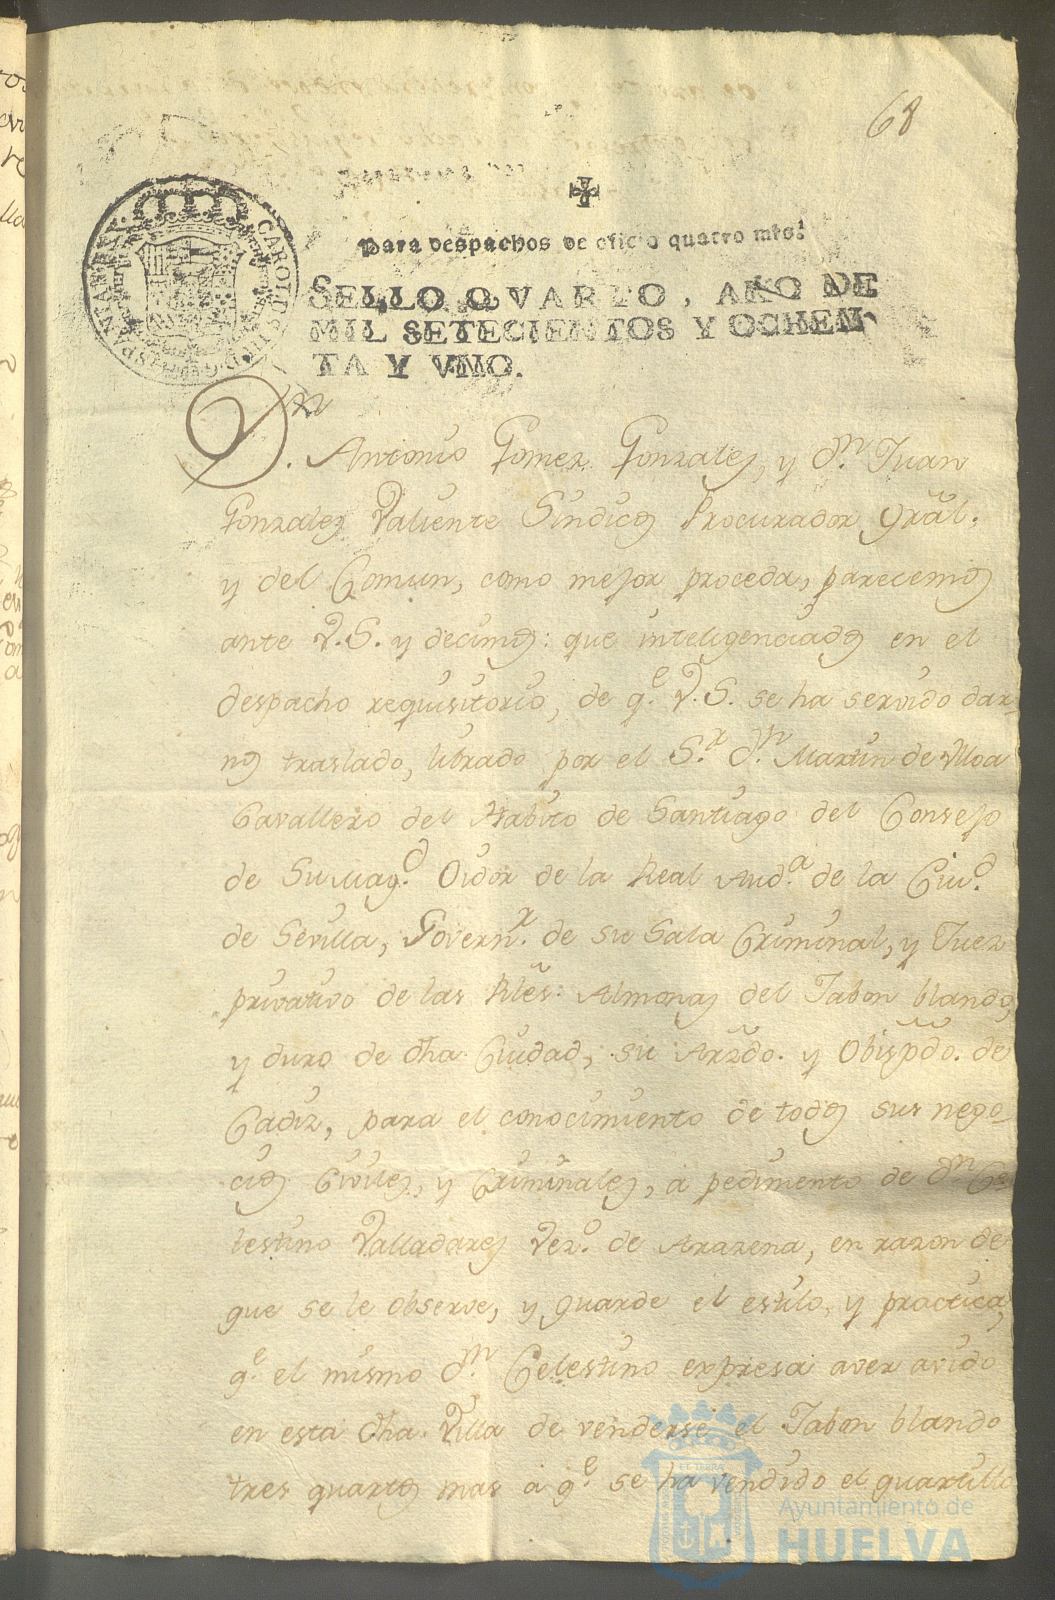 68
Para despachos de oficio quatro mrs.
SELLO QVARTO, AÑO DE
MIL SETECIENTOS Y OCHEN
TA Y VNO.
CAROLUS III D G HISPANIAR REX
Dn. Antonio Gomez Gonzales, y dn. Juan
Gonzalez Valiente Sindicos Procurador Grãl.
y del Comun, como mejor proceda, parecemos
ante V.S. y decimos: que inteligenciados en el
despacho requisitorio, de qe. V.S. se ha servido dar-
nos traslado, librado por el Sr. dn. Martin de Ulloa
Cavallero del Habito de Santiago del Consejo
de Su Magd. Oidor de la Real Auda. de la Ciud.
de Sevilla, Governr. de su Sala Criminal, y Juez
privativo de las Rles. Almonas del Jabon blando,
y duro de dha Ciudad, su Arzdo. y Obispdo. de
Cadiz, para el conocimiento de todos sus nego-
cios Civiles, y Criminales, a pedimento de dn. Ce-
lestino Valladares Vezo. de Arazena, en razon de
que se le observe, y guarde el estilo, y practica,
qe. el mismo dn. Celestino expresa aver avido
en esta dha. Villa de venderse el Jabon blando
tres quartos mas a qe. se ha vendido el quartillo
Ayuntamiento de
HUELVA